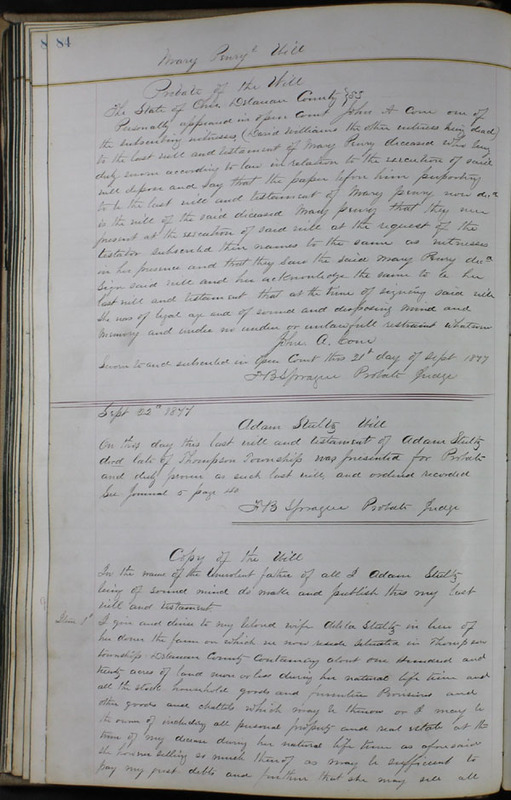 8 84
Mary Penry's Will
Probate of the Will
The State of Ohio Delaware County SS
Personally appeared in open Court John A Cone one of
the subscribing witnesses (David Williams the other witness being dead)
to the last will and testament of Mary Penry deceased who being
duly sworn according to law in relation to the execution of said
will depose and say that the paper before him purporting
to be the last will and testament of Mary Penry now decd
is the will of the said deceased Mary Penry that they were
present at the execution of said will at the request of the
testator subscribed their names to the same as witnesses
in his presence and that they saw the said Mary Penry decd
sign said will and her acknowledge the same to be her
last will and testament that at the time of signing said will
She was of legal age and of sound and disposing mind and
memory and under no undue or unlawfull restraint whatever
John A. Cone
Sworn to and subscribed in open Court this 21st day of Sept 1877
F B Sprague Probate Judge
Sept 22nd 1877
Adam Stultz Will
On this day this last will and testament of Adam Stultz
decd late of Thompson Township was presented for Probate
and duly proven as such last will, and ordered recorded
See Journal 5 page 40
F B Sprague Probate Judge
Copy of the Will
In the name of the Benevolent father of all I Adam Stultz
being of sound mind do make and publish this my last
will and testament
Item 1st I give and devise to my beloved wife Stultz in lieu of
her dower the farm on which we now reside situated in Thompson
township Delaware County Containing about one hundred and
acres of land more or less during her natural life time and
all the stock household goods and furniture Provisions and
other goods and chattels which may be thereon or I may be
the owner of including all personal property and real estate at the
time of my decease during her natural life time as aforesaid
She however selling so much thereof as may be sufficient to
pay my just debts and further that she may sell all